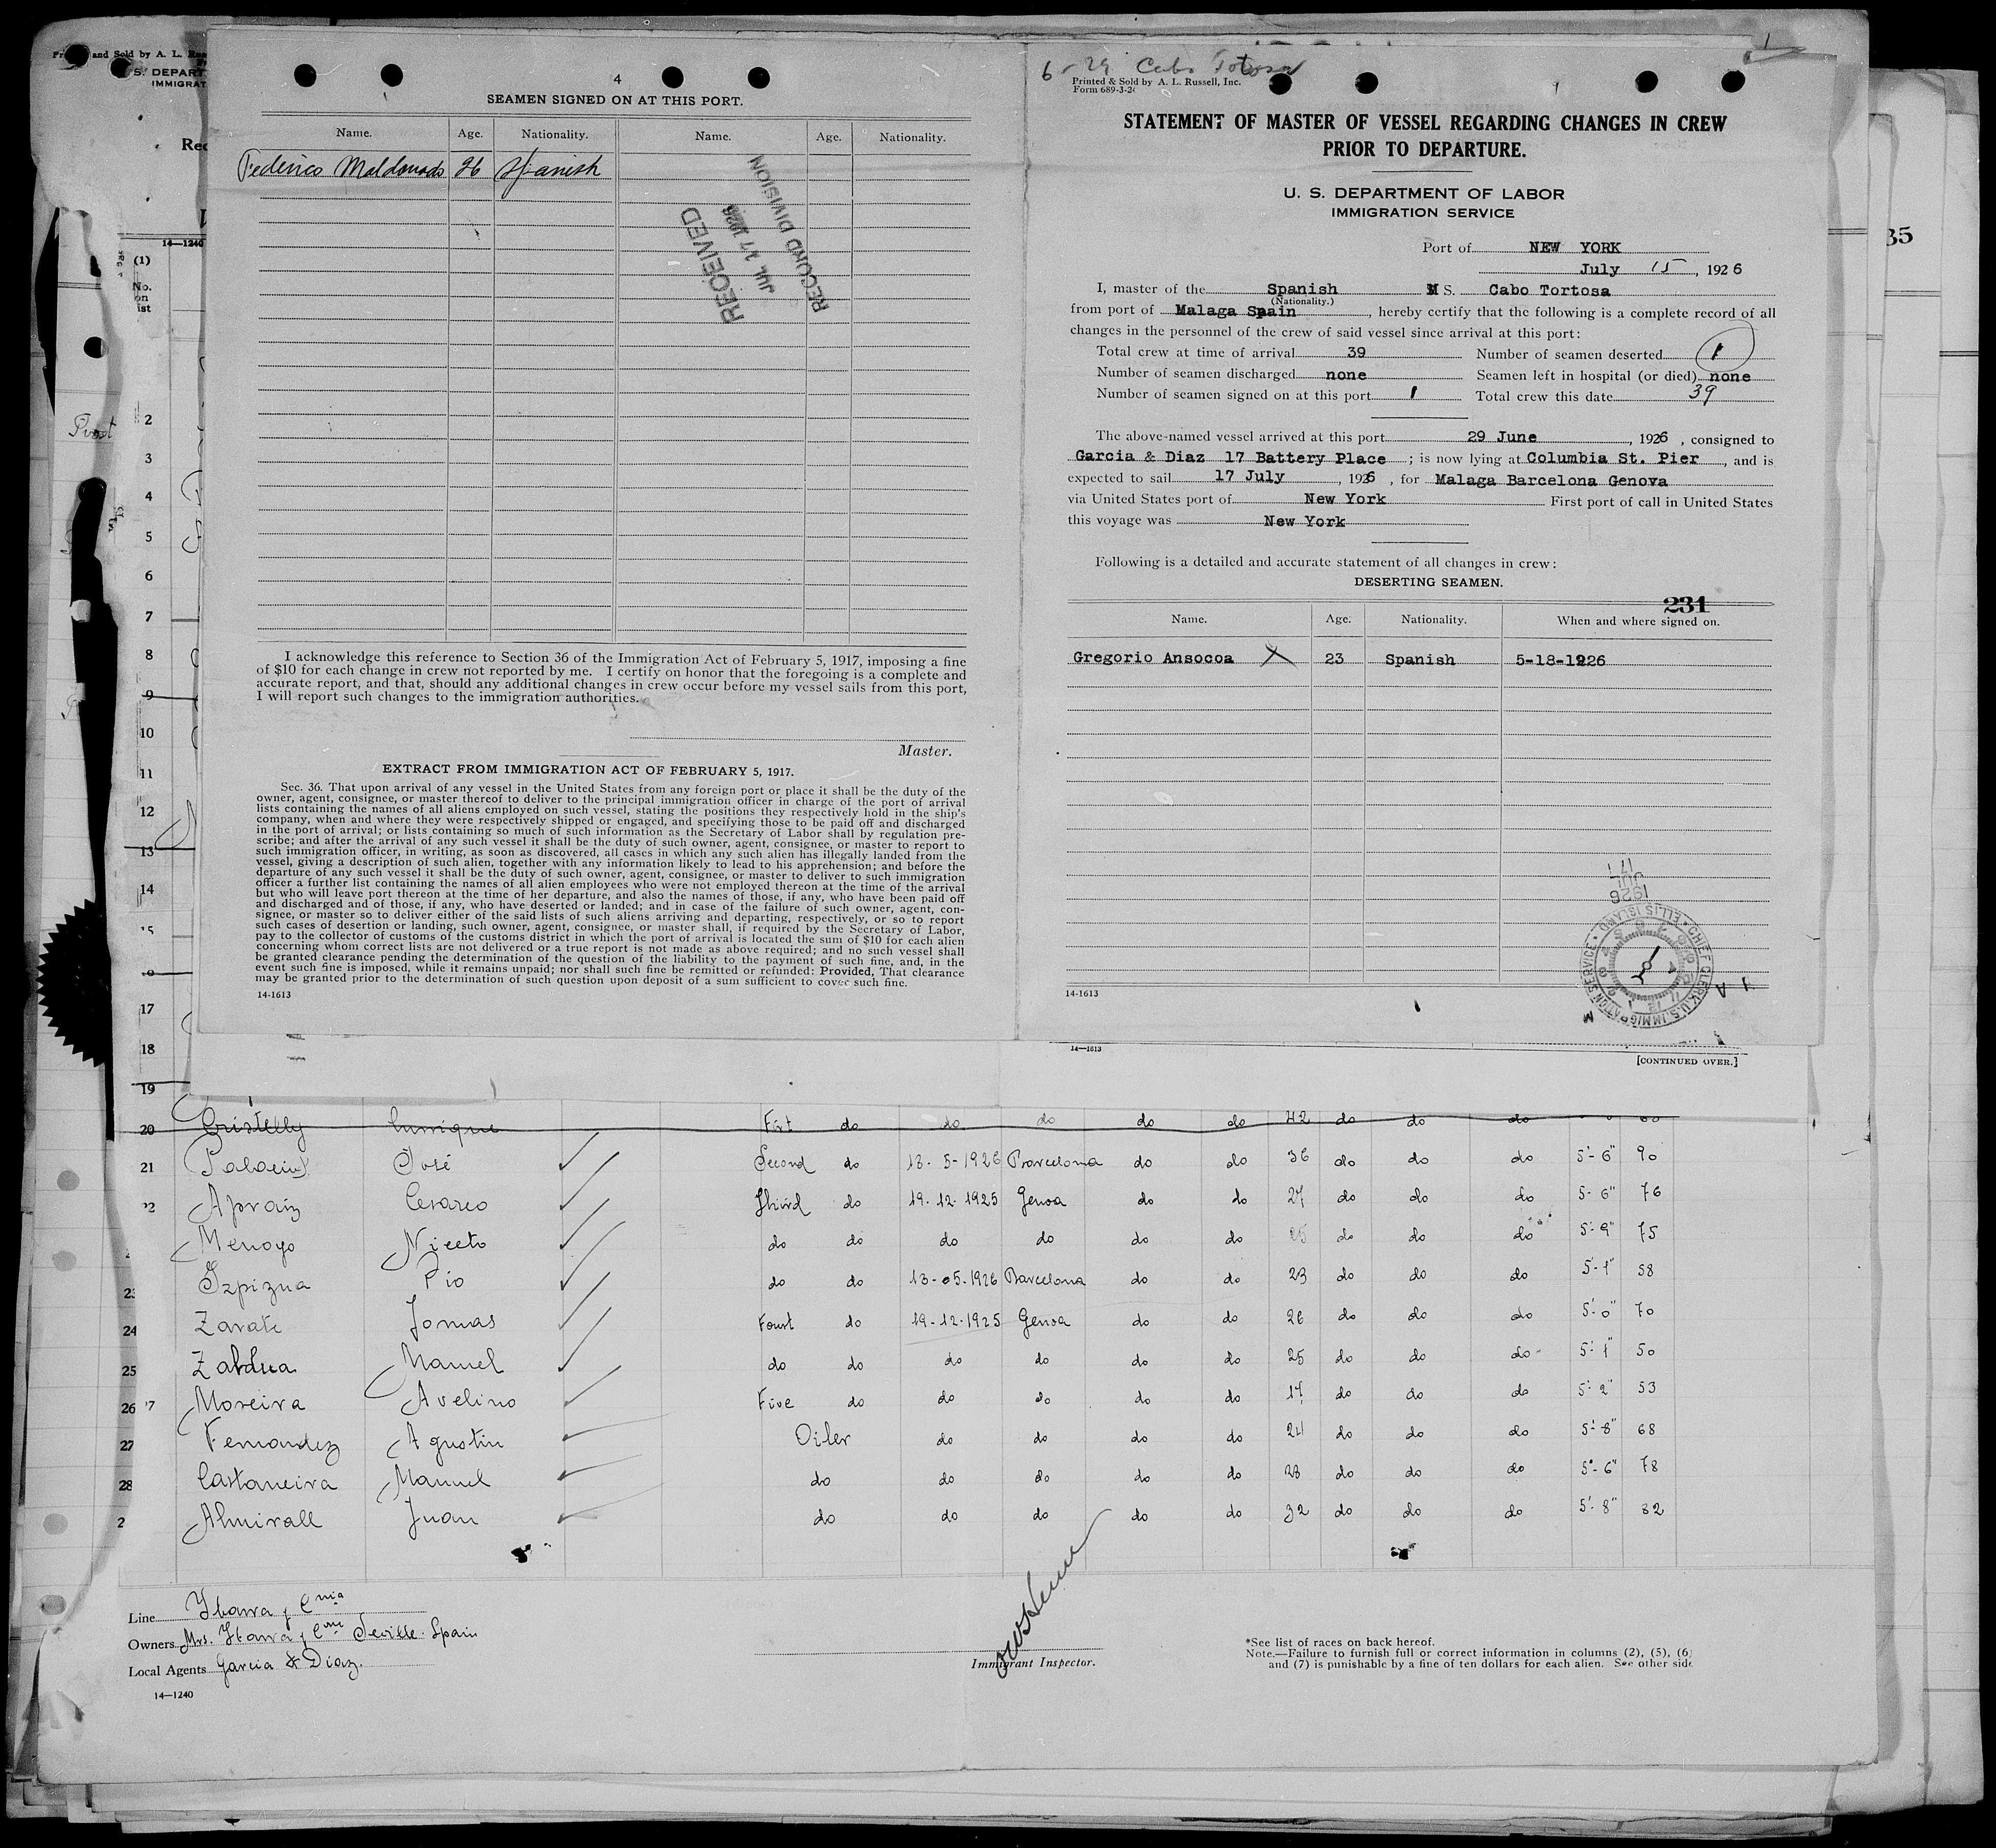 4
SEAMEN SIGNED ON AT THIS PORT.
Name. Age. Nationality. Name. Age. Nationality.
Federico Maldonado 26 Spanish
RECEIVED
JUL 17 1926
RECORD DIVISION
I acknowledge this reference to Section 36 of the Immigration Act of February 5, 1917, imposing a fine
of $10 for each change in crew not reported by me. I certify on honor that the foregoing is a complete and
accurate report, and that, should any additional changes in crew occur before my vessel sails from this port,
I will report such changes to the immigration authorities.
Master.
EXTRACT FROM IMMIGRATION ACT OF FEBRUARY 5, 1917.
Sec. 36. That upon arrival of any vessel in the United States from any foreign port or place it shall be the duty of the
owner, agent, consignee, or master thereof to deliver to the principal immigration officer in charge of the port of arrival
lists containing the names of all aliens employed on such vessel, stating the positions they respectively hold in the ship's
company, when and where they were respectively shipped or engaged, and specifying those to be paid off and discharged
in the port of arrival; or lists containing so much of such information as the Secretary of Labor shall by regulation pre-
scribe; and after the arrival of any such vessel it shall be the duty of such owner, agent, consignee, or master to report to
such immigration officer, in writing, as soon as discovered, all cases in which any such alien has illegally landed from the
vessel, giving a description of such alien, together with any information likely to lead to his apprehension; and before the
departure of any such vessel it shall be the duty of such owner, agent, consignee, or master to deliver to such immigration
officer a further list containing the names of all alien employees who were not employed thereon at the time of the arrival
but who will leave port thereon at the time of her departure, and also the names of those, if any, who have been paid off
and discharged and of those, if any, who have deserted or landed; and in case of the failure of such owner, agent, con-
signee, or master so to deliver either of the said lists of such aliens arriving and departing, respectively, or so to report
such cases of desertion or landing, such owner, agent, consignee, or master shall, if required by the Secretary of Labor,
pay to the collector of customs of the customs district in which the port of arrival is located the sum of $10 for each alien
concerning whom correct lists are not delivered or a true report is not made as above required; and no such vessel shall
be granted clearance pending the determination of the question of the liability to the payment of such fine, and, in the
event such fine is imposed, while it remains unpaid; nor shall such fine be remitted or refunded: Provided, That clearance
may be granted prior to the determination of such question upon deposit of a sum sufficient to cover such fine.
14-1613
6-29 Cabo Totosa
Printed & Sold by A. L. Russell, Inc.
Form 689-3-26
STATEMENT OF MASTER OF VESSEL REGARDING CHANGES IN CREW
PRIOR TO DEPARTURE.
U. S. DEPARTMENT OF LABOR
IMMIGRATION SERVICE
Port of NEW YORK
July 15, 1926
I, master of the Spanish M S. Cabo Tortosa
(Nationality.)
from port of Malaga Spain, hereby certify that the following is a complete record of all
changes in the personnel of the crew of said vessel since arrival at this port:
Total crew at time of arrival 39 Number of seamen deserted 1
Number of seamen discharged none Seamen left in hospital (or died) none
Number of seamen signed on at this port 1 Total crew this date 39
The above-named vessel arrived at this port 29 June, 1926, consigned to
Garcia & Diaz 17 Battery Place; is now lying at Columbia St. Pier, and is
expected to sail 17 July, 1926, for Malaga Barcelona Genova
via United States port of New York First port of call in United States
this voyage was New York
Following is a detailed and accurate statement of all changes in crew:
DESERTING SEAMEN.
231
Name. Age. Nationality. When and where signed on.
Gregorio Ansocoa X 23 Spanish 5-18-1926
JUL 17 1926
CHIEF CLERK, U.S. IMMIGRATION SERVICE • ELLIS ISLAND
14-1613
14—1613
[CONTINUED OVER.]
and Sold by A. L.
S. DEPART
IMMIGRAT
Rec
14—1240
(1)
No.
on
ist
35
2
3
4
5
6
7
8
9
10
11
12
13
14
15
17
18
19
20 Cristelly Enrique First do do do do do 42 do do do
21 Palacius José Second do 13-5-1926 Barcelona do do 36 do do do 5'-6" 90
22 Apraiz Cesareo Third do 19-12-1925 Genoa do do 27 do do do 5-6" 76
Menoyo Niceto do do do do do do do do do 5'-9" 75
23 Izpizua Pio do do 13-05-1926 Barcelona do do 23 do do do 5'-1" 58
24 Zarate Tomas Fourt do 19-12-1925 Genoa do do 26 do do do 5'-0" 70
25 Zaldua Manuel do do do do do do 25 do do do 5'-1" 50
26 Moreira Avelino Five do do do do do 17 do do do 5'-2" 53
27 Fernandez Agustin Oiler do do do do 24 do do do 5'-8" 68
28 Castaneira Manuel do do do do do 28 do do do 5'-6" 78
2 Almirall Juan do do do do do 32 do do do 5'-8" 82
Line Ybarra y Cnia
Owners Mrs. Ybarra y Cnia Seville. Spain
Local Agents Garcia & Diaz.
14—1240
Immigrant Inspector.
*See list of races on back hereof.
Note.—Failure to furnish full or correct information in columns (2), (5), (6)
and (7) is punishable by a fine of ten dollars for each alien. See other side